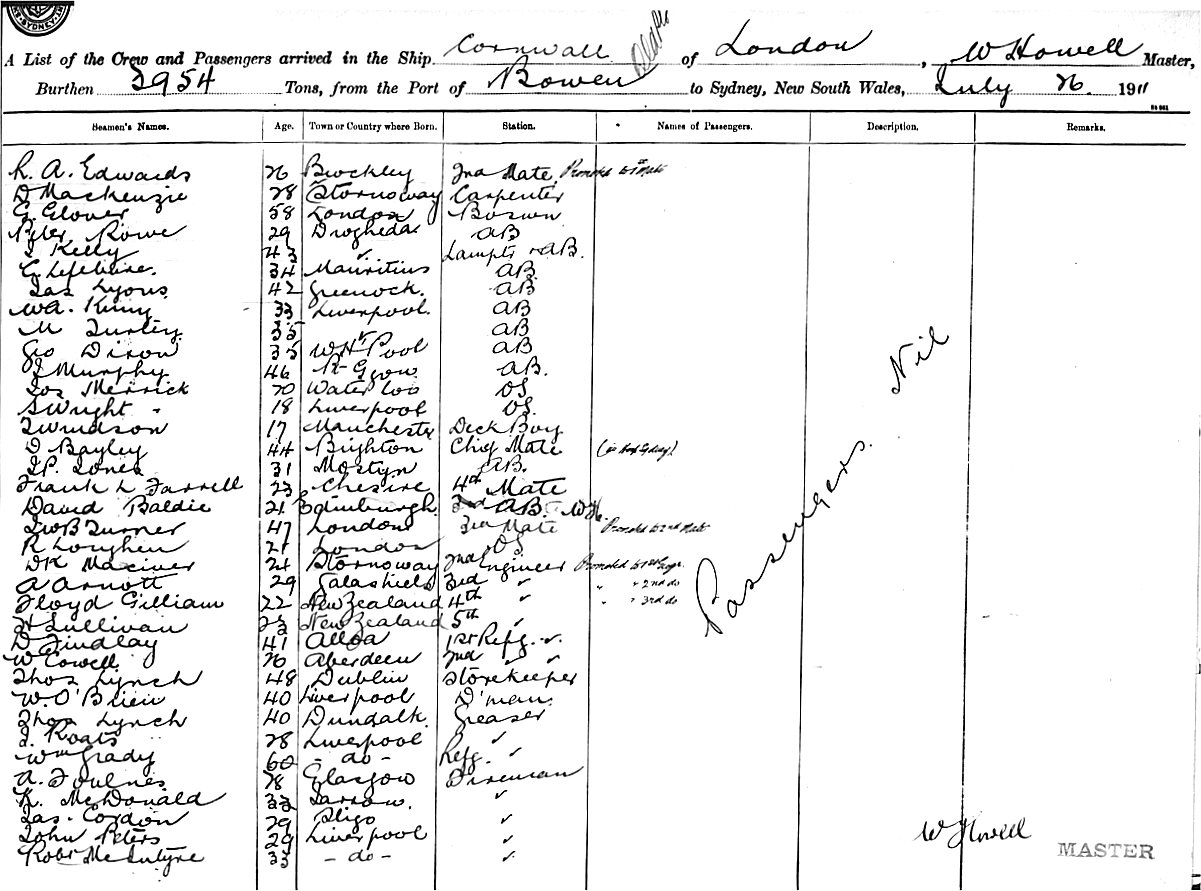 SYDNEY
A List of the Crew and Passengers arrived in the Ship Cornwall of London, W Howell Master,
Burthen 3954 Tons, from the Port of Bowen to Sydney, New South Wales, July 26 1911
Seamen's Names. Age. Town or Country where Born. Station. Names of Passengers. Description. Remarks.
R. A. Edwards 26 Brockley 2nd Mate Promoted to 1st Mate
D Mackenzie 28 Stornoway Carpenter
G. Glover 58 London Bosun
Peter Rowe 29 Drogheda AB
Kelly 43 " Lamps & AB.
Lefebvre. 34 Mauritius AB.
Jas Lyons 42 Greenock. AB
WA. 33 Liverpool. AB
M Turley 35 " AB
Geo Dixon 35 W H Pool AB
J Murphy 46 Pt Glgow AB.
Jos Merrick 20 Waterloo OS.
S Wright 18 Liverpool OS.
17 Manchester Deck Boy
D Bayley 44 Brighton Chief Mate
J.P. Jones 31 Mostyn AB.
Frank L Farrell 23 Chesire 4th Mate
David Baldie 21 Edinburgh AB. WH.
JWB Turner 47 London 3rd Mate Promoted to 2nd Mate
R 21 London OS
DK Maciver 24 Stornoway 2nd Engineer Promoted to 1st Engr.
A Arnott 29 Galashiels 3rd " " " 2nd do
Floyd Gilliam 22 New Zealand 4th " " " 3rd do
H Sullivan 23 New Zealand 5th "
D Findlay 41 Alloa 1st Refg. "
W Cowell. 26 Aberdeen 2nd " "
Thos Lynch 48 Dublin Storekeeper
W. O'Brien 40 Liverpool D'man.
Thos Lynch 40 Dundalk. Greaser
J. Roats 28 Liverpool "
Wm Grady 60 - do - Refg. "
A. Foulnes 28 Glasgow Fireman
K. McDonald 33 Jarrow. "
Jas. Cordon 29 Sligo "
John Peters 29 Liverpool "
Robt McIntyre 33 - do - "
Passengers. Nil
W Howell
MASTER